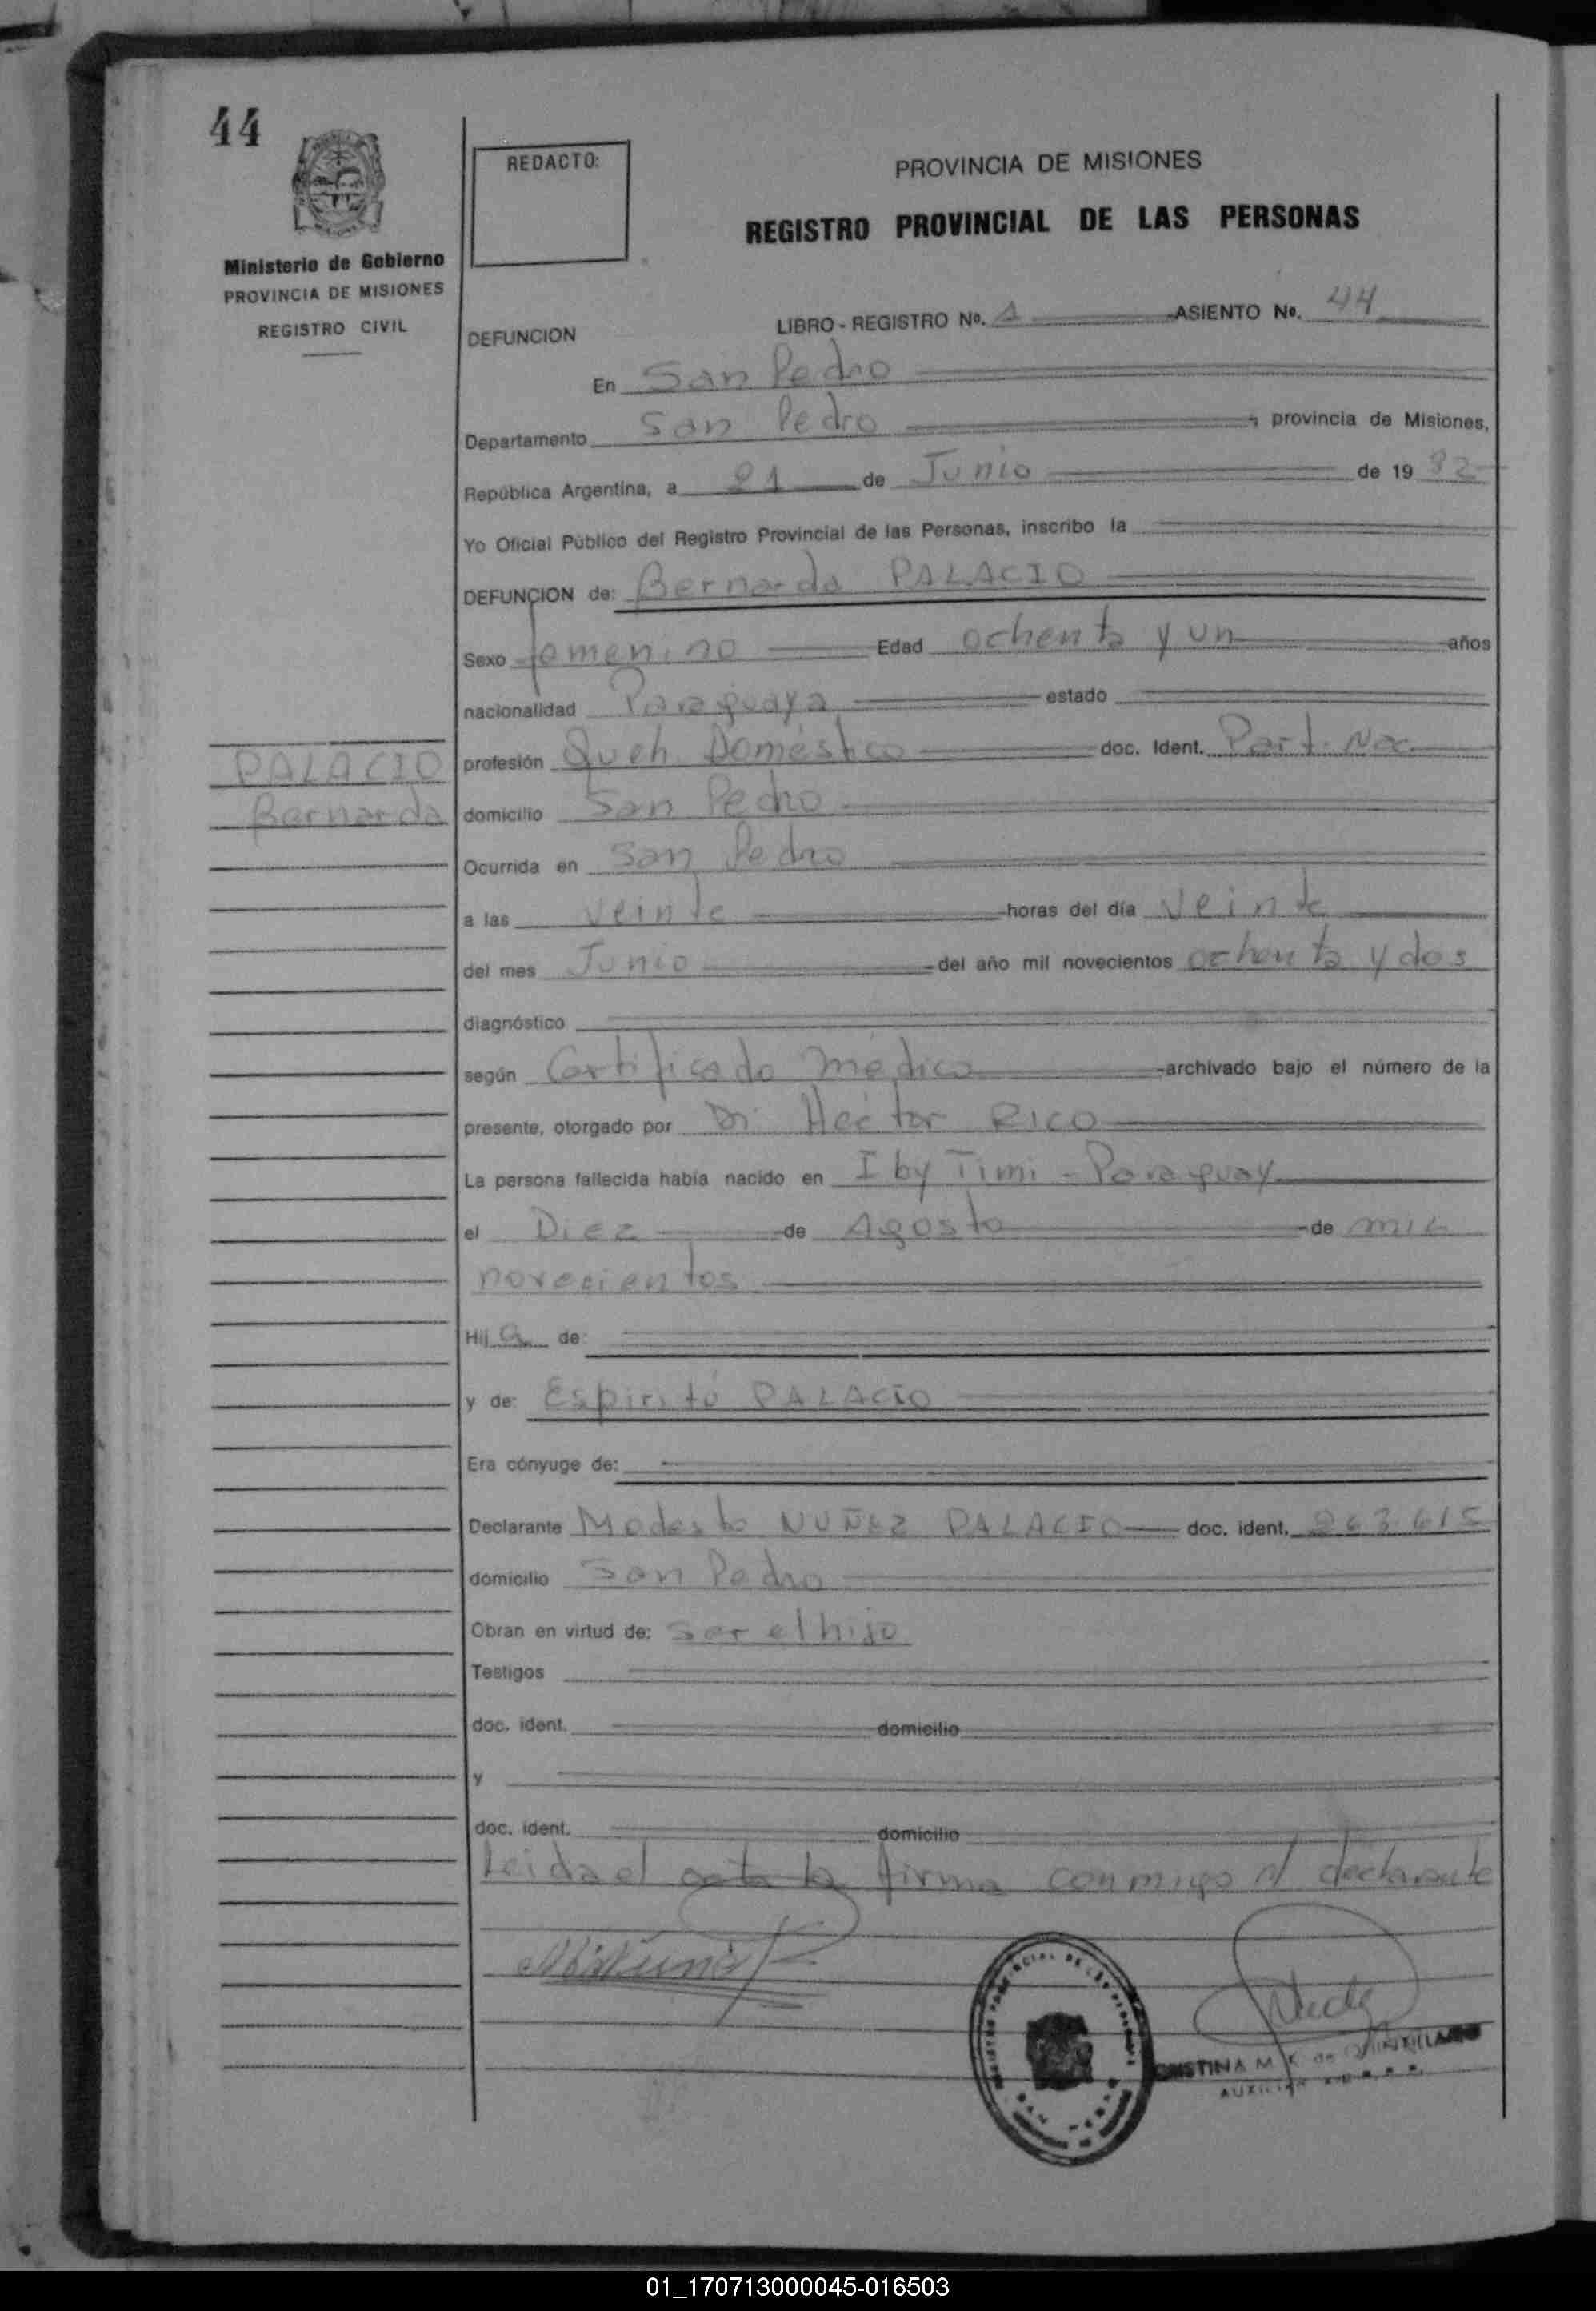 44
REDACTO:
PROVINCIA DE MISIONES
REGISTRO PROVINCIAL DE LAS PERSONAS
Ministerio de Gobierno
PROVINCIA DE MISIONES
REGISTRO CIVIL
DEFUNCION LIBRO - REGISTRO Nº. 1 ASIENTO Nº. 44
En San Pedro
Departamento San Pedro , provincia de Misiones,
República Argentina, a 21 de Junio de 19 82
Yo Oficial Público del Registro Provincial de las Personas, inscribo la
DEFUNCION de: Bernarda PALACIO
Sexo femenino Edad ochenta y un años
nacionalidad Paraguaya estado
profesión Queh. Doméstico doc. Ident. Part. Nac.
PALACIO
Bernarda
domicilio San Pedro
Ocurrida en San Pedro
a las veinte horas del día veinte
del mes Junio del año mil novecientos ochenta y dos
diagnóstico
según Certificado médico archivado bajo el número de la
presente, otorgado por Dr. Héctor RICO
La persona fallecida había nacido en Iby Timi - Paraguay
el Diez de Agosto de mil
novecientos
Hij a de:
y de: Espíritu PALACIO
Era cónyuge de:
Declarante Modesto NUÑEZ PALACIO doc. ident. 263.615
domicilio San Pedro
Obran en virtud de: Ser el hijo
Testigos
doc. ident. domicilio
y
doc. ident. domicilio
Leida el acta la firma conmigo el declarante
CRISTINA M. K. de QUINTILLAN
AUXILIAR
01_170713000045-016503